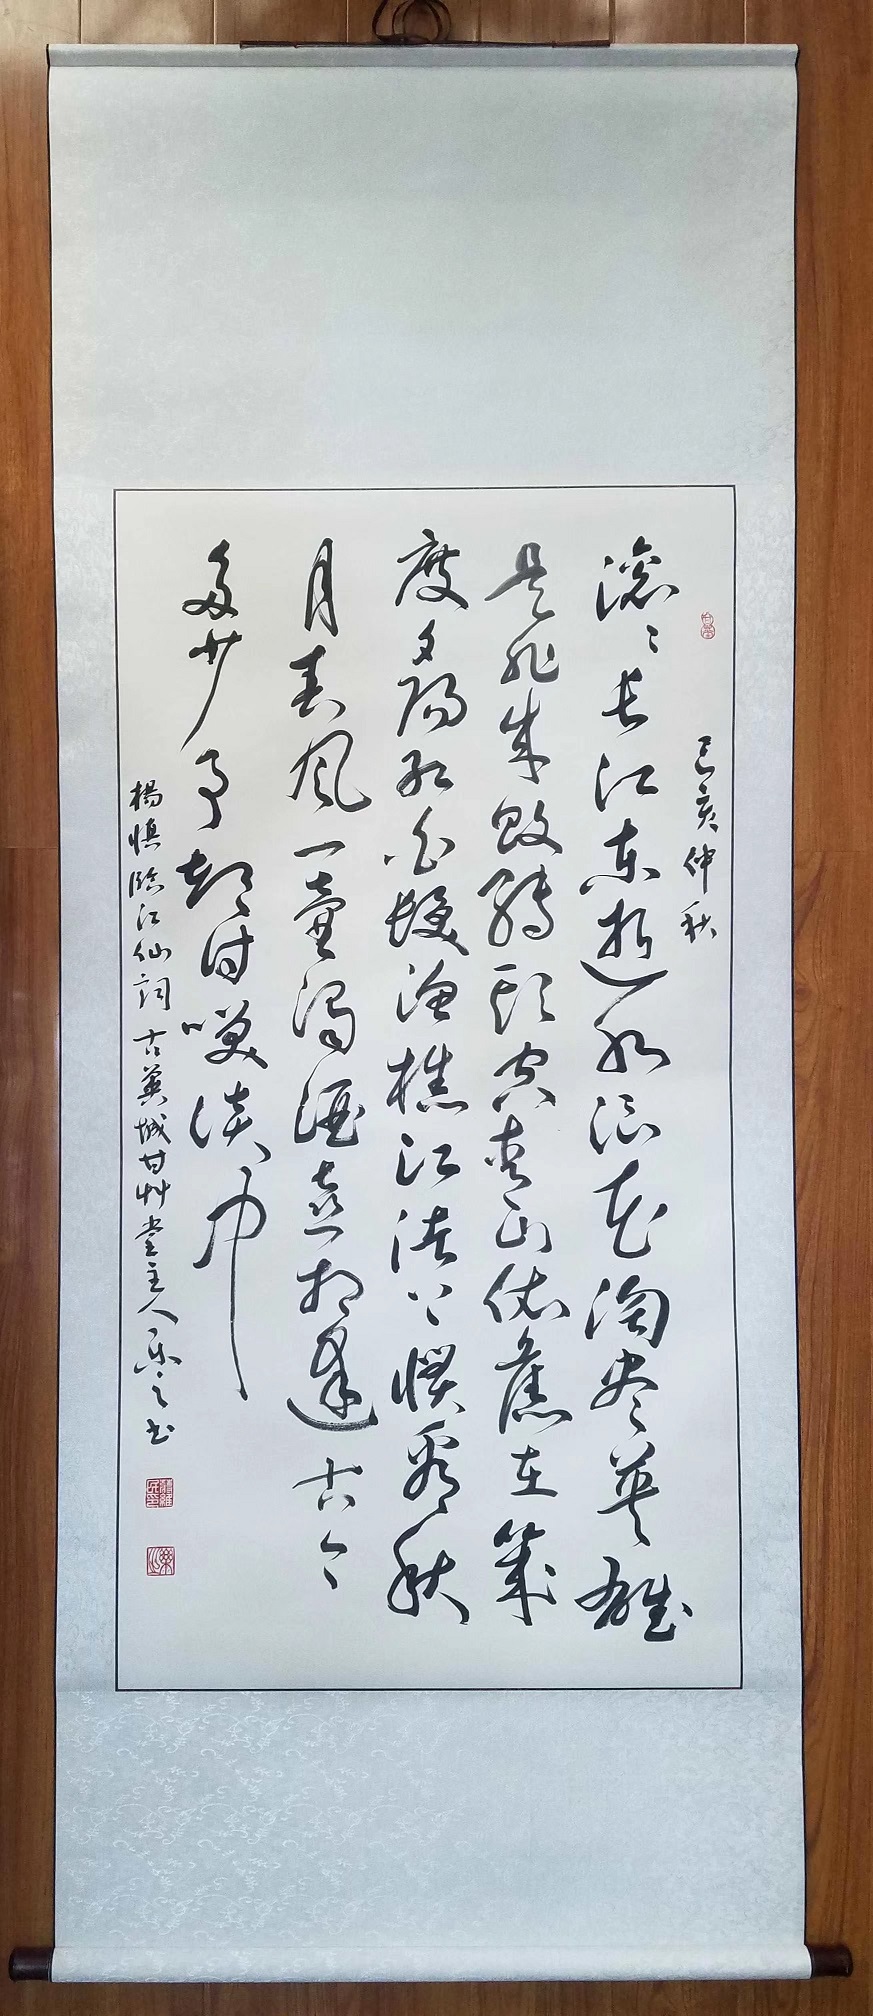 己亥仲秋
滚〻长江东逝水浪花淘尽英雄
是非成败转头空青山依旧在几
度夕阳红白发渔樵江渚上惯看秋
月春风一壶浊酒喜相逢古今
多少事都付笑谈中
杨慎临江仙词 古冀城甘草堂主人乐之书